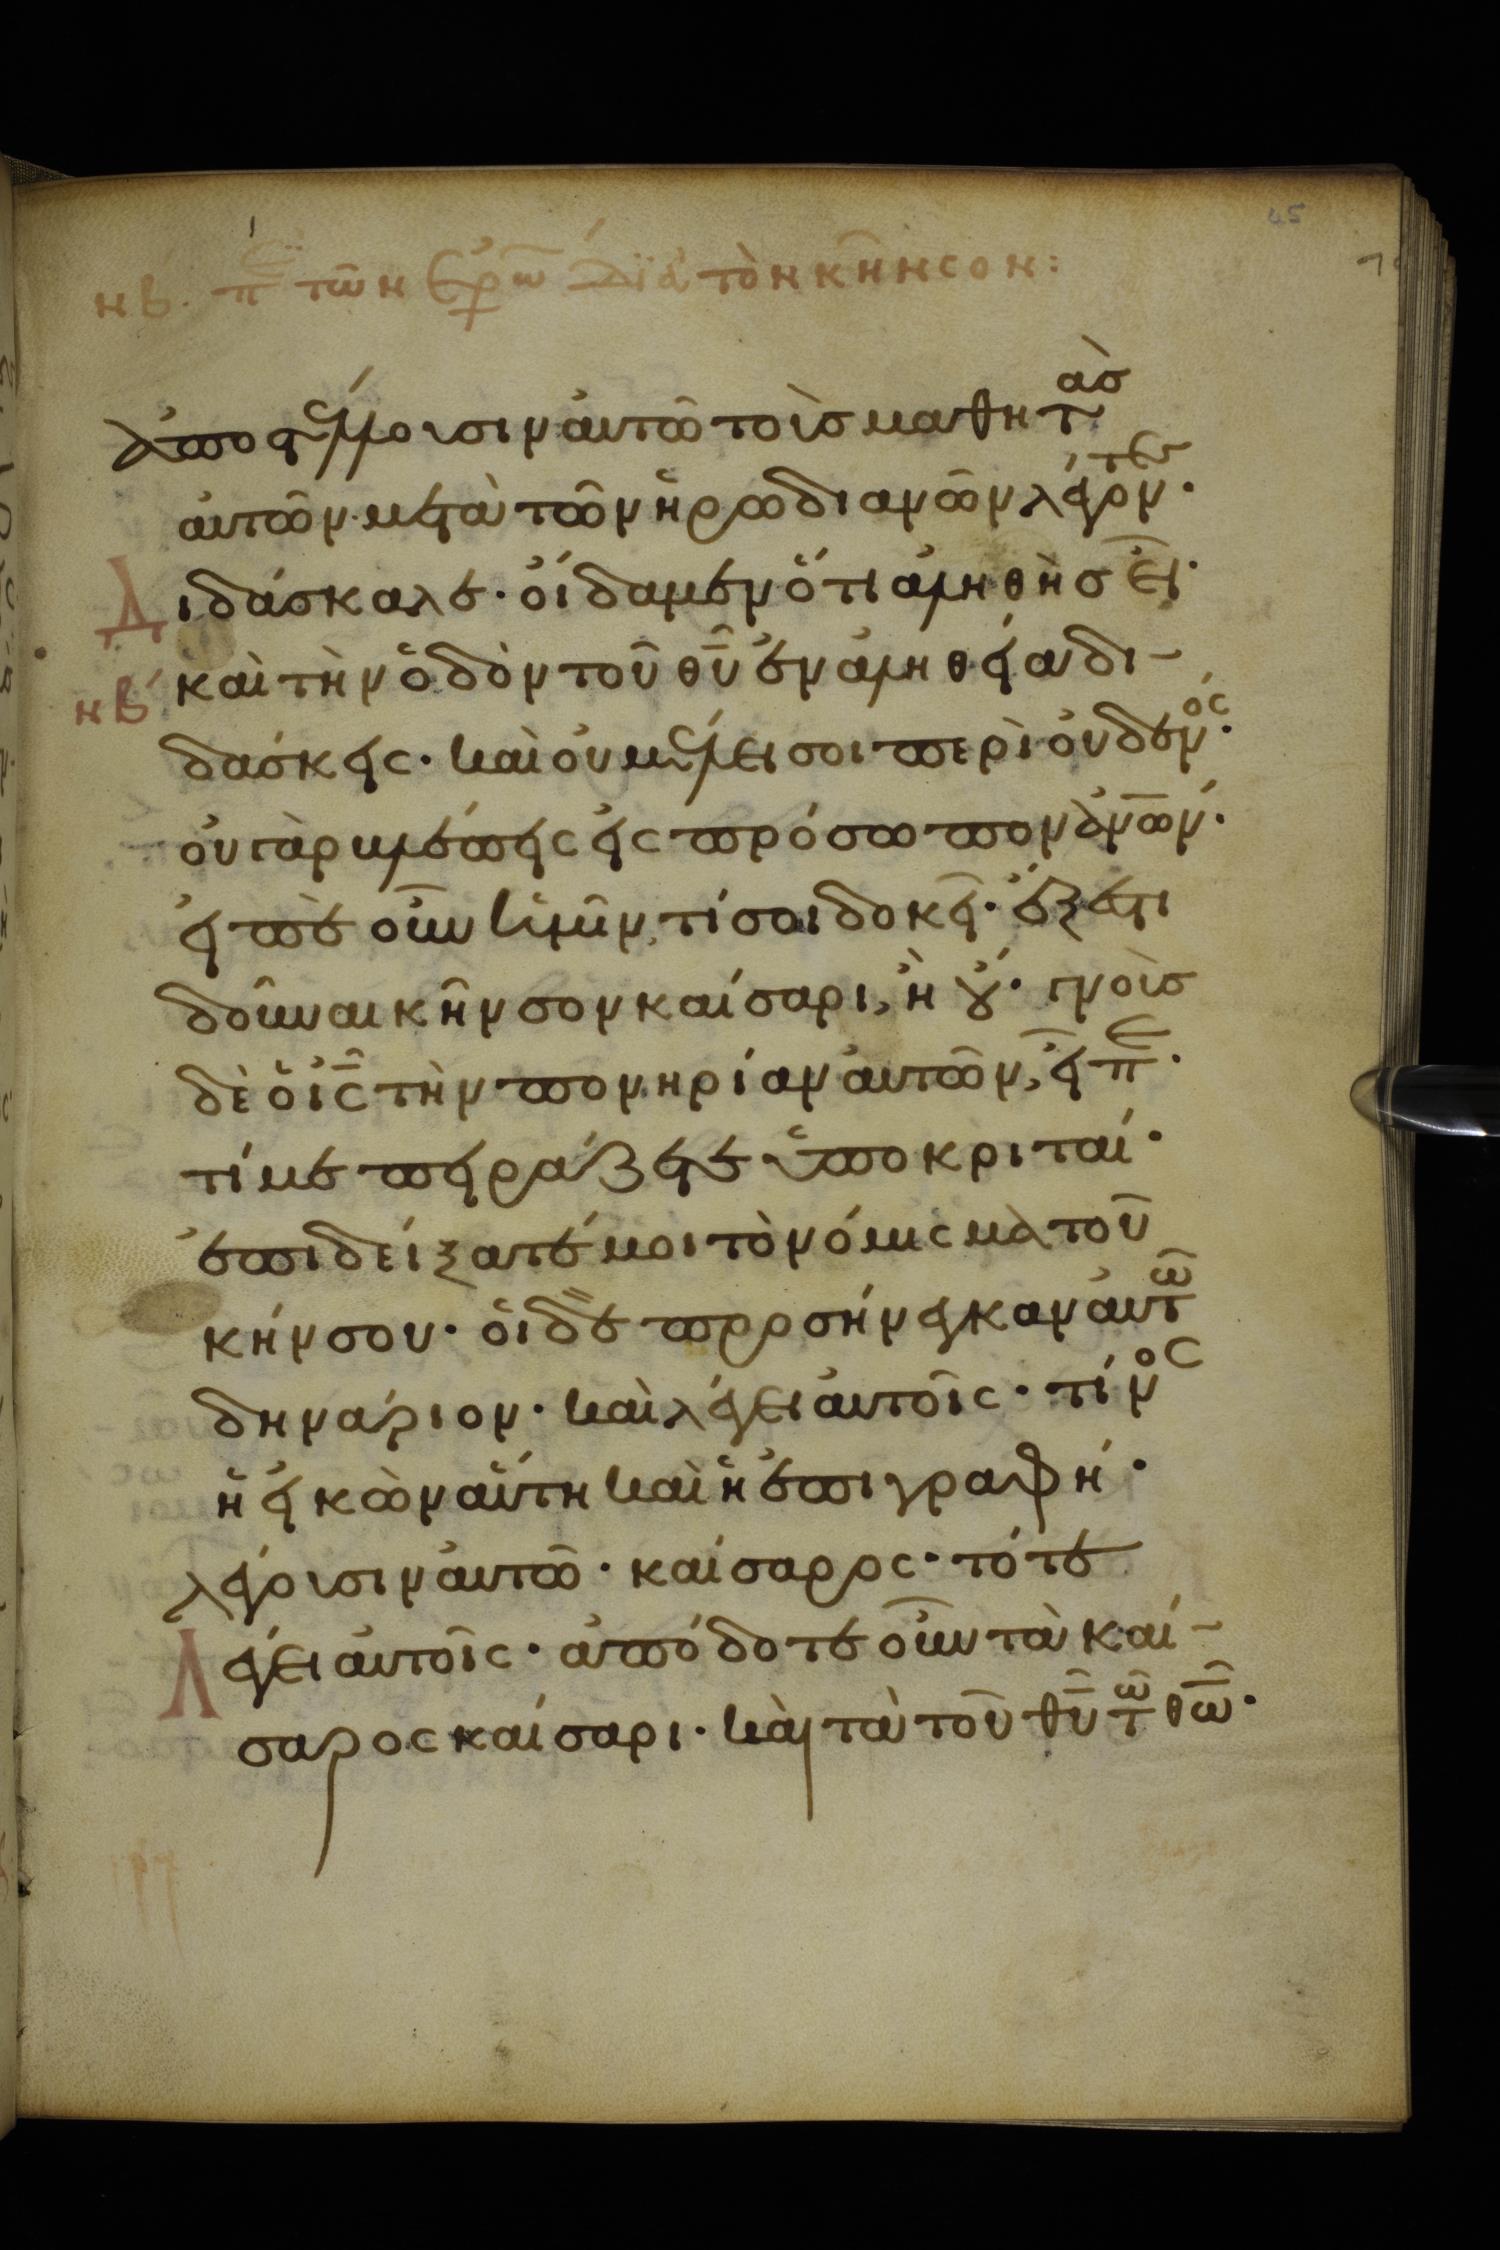 νβ. π̅ε τῶν ἐρω̅ διὰ τὸν κῆνσον:
ἀποστέλλουσιν αὐτῶ τοὺσ μαθητὰσ
αὐτῶν μετὰ τῶν ἡρωδιανῶν λέγοντεσ·
Διδάσκαλε· οἴδαμεν ὅτι ἀληθὴσ εἶ·
νβ´ καὶ τὴν ὁδὸν τοῦ θ̅υ̅ ἐν ἀληθεία δι-
δάσκεις· καὶ οὐ μέλει σοι περὶ οὐδενός·
οὐ γὰρ βλέπεις εἰς πρόσωπον ἀν̅ων·
εἰπὲ οὖν ἡμῖν, τί σοι δοκεῖ· ἔξεστι
δοῦναι κῆνσον καίσαρι, ἢ οὔ· γνοὺσ
δὲ ὁ ι̅ς̅ τὴν πονηρίαν αὐτῶν, εἶπε·
τί με πειράζετε ὑποκριταί·
ἐπιδείξατέ μοι τὸ νόμισμα τοῦ
κήνσου· οἱ δὲ προσήνεγκαν αὐτῶ
δηνάριον· καὶ λέγει αὐτοῖς· τίνος
ἡ εἰκὼν αὕτη καὶ ἡ ἐπιγραφή·
λέγουσιν αὐτῶ· καίσαρος· τότε
Λέγει αὐτοῖς· ἀπόδοτε οὖν τὰ καί-
σαρος καίσαρι· καὶ τὰ τοῦ θ̅υ̅ τῶ θ̅ω̅·